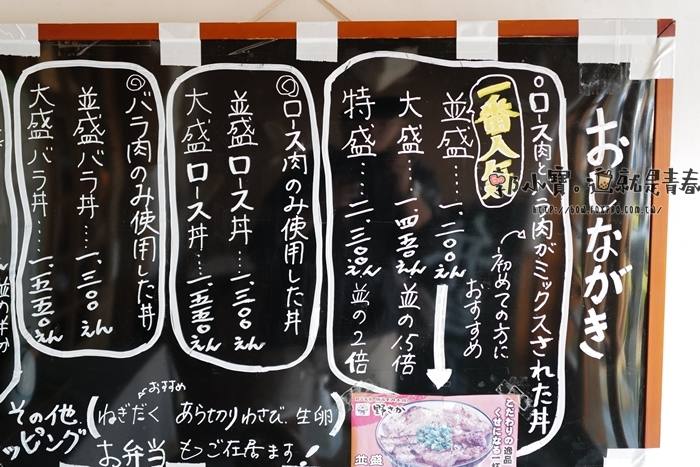 おしながき
○ロース肉とバラ肉がミックスされた丼
一番人気
初めての方に
おすすめ
並盛…一、二〇〇えん
大盛…一、四五〇えん 並の1.5倍
特盛…二、三〇〇えん 並の2倍
◎ロース肉のみ使用した丼
並盛ロース丼…一、三〇〇えん
大盛ロース丼…一、五五〇えん
◎バラ肉のみ使用した丼
並盛バラ丼…一、三〇〇えん
大盛バラ丼…一、五五〇えん
並の半分
その他
ッピング
おすすめ
(ねぎだく あらさ刀りわさび、生卵
お弁当もご在居ます!
野さか
こだわりの逸品
くせになる一杯
並盛
郭小寶。這就是青春